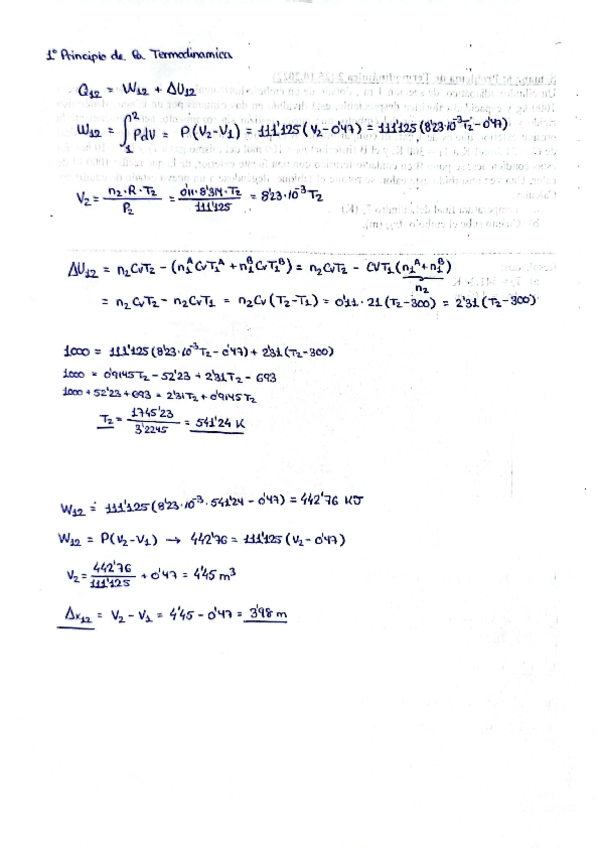 1º Principio de la Termodinamica
Q₁₂ = W₁₂ + ΔU₁₂
W₁₂ = ∫₁² PdV = P(V₂-V₁) = 111'125(V₂-0'47) = 111'125(8'23·10⁻³T₂-0'47)
V₂ = n₂·R·T₂ / P₂ = 0'11·8'314·T₂ / 111'125 = 8'23·10⁻³T₂
ΔU₁₂ = n₂CvT₂ - (n₁ᴬCvT₁ᴬ + n₁ᴮCvT₁ᴮ) = n₂CvT₂ - CVT₁(n₁ᴬ+n₁ᴮ)
n₂
= n₂CvT₂ - n₂CvT₁ = n₂Cv(T₂-T₁) = 0'11·21(T₂-300) = 2'31(T₂-300)
1000 = 111'125(8'23·10⁻³T₂-0'47) + 2'31(T₂-300)
1000 = 0'9145T₂ - 52'23 + 2'31T₂ - 693
1000 + 52'23 + 693 = 2'31T₂ + 0'9145T₂
T₂ = 1745'23 / 3'2245 = 541'24 K
W₁₂ = 111'125(8'23·10⁻³·541'24 - 0'47) = 442'76 KJ
W₁₂ = P(V₂-V₁) → 442'76 = 111'125(V₂-0'47)
V₂ = 442'76 / 111'125 + 0'47 = 4'45 m³
Δx₁₂ = V₂ - V₁ = 4'45 - 0'47 = 3'98 m